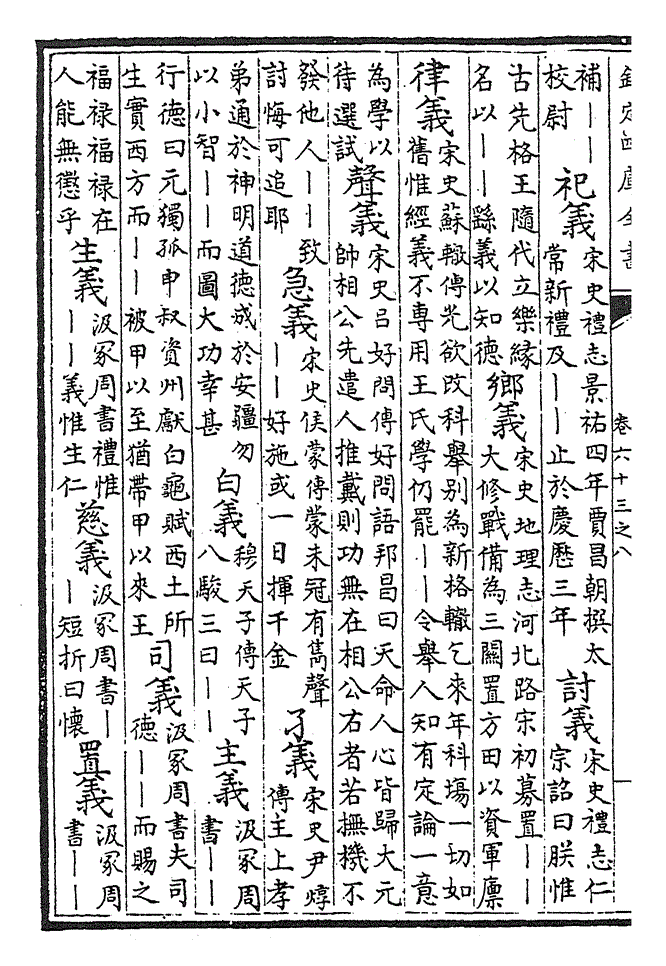 欽定四庫全書
卷六十三之八
補——
校尉
祀義
宋史禮志景祐四年賈昌朝撰太
常新禮及——止於慶歷三年
討義
宋史禮志仁
宗詔曰朕惟
古先格王隨代立樂緣
名以——繇義以知德
鄉義
宋史地理志河北路宋初募置——
大修戰備為三關置方田以資軍廪
律義
宋史蘇轍傳光欲改科舉别為新格轍乞來年科塲一切如
舊惟經義不專用王氏學仍罷——令舉人知有定論一意
為學以
待選試
聲義
宋史吕好問傳好問語邦昌曰天命人心皆歸大元
帥相公先遣人推戴則功無在相公右者若撫機不
發他人——致
討悔可追耶
急義
宋史侯蒙傳蒙未冠有雋聲
——好施或一日揮千金
孑義
宋史尹焞
傳主上孝
弟通於神明道德成於安疆勿
以小智——而圖大功幸甚
白義
穆天子傳天子
八駿三曰——
主義
汲冢周
書——
行德曰元獨孤申叔資州獻白龜賦西土所
生實西方而——被甲以至猶帶甲以來王
司義
汲冢周書夫司
德——而賜之
福禄福禄在
人能無懲乎
生義
汲冢周書禮惟
——義惟生仁
慈義
汲冢周書—
—短折曰懷
置義
汲冢周
書——